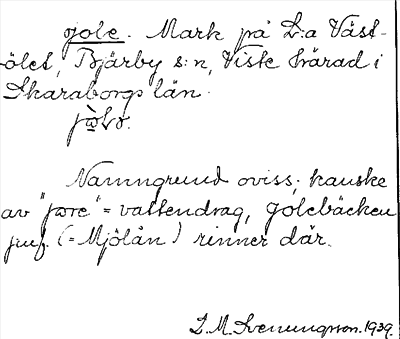 gole. Mark på L:a Väst-
ölet, Bjärby s:n, Viste härad i
Skaraborgs län.

Namngrund oviss; kanske
av "göre" = vattendrag, golebäcken
jmf. (= Mjölån) rinner där.
L. M. Svenungsson. 1939.